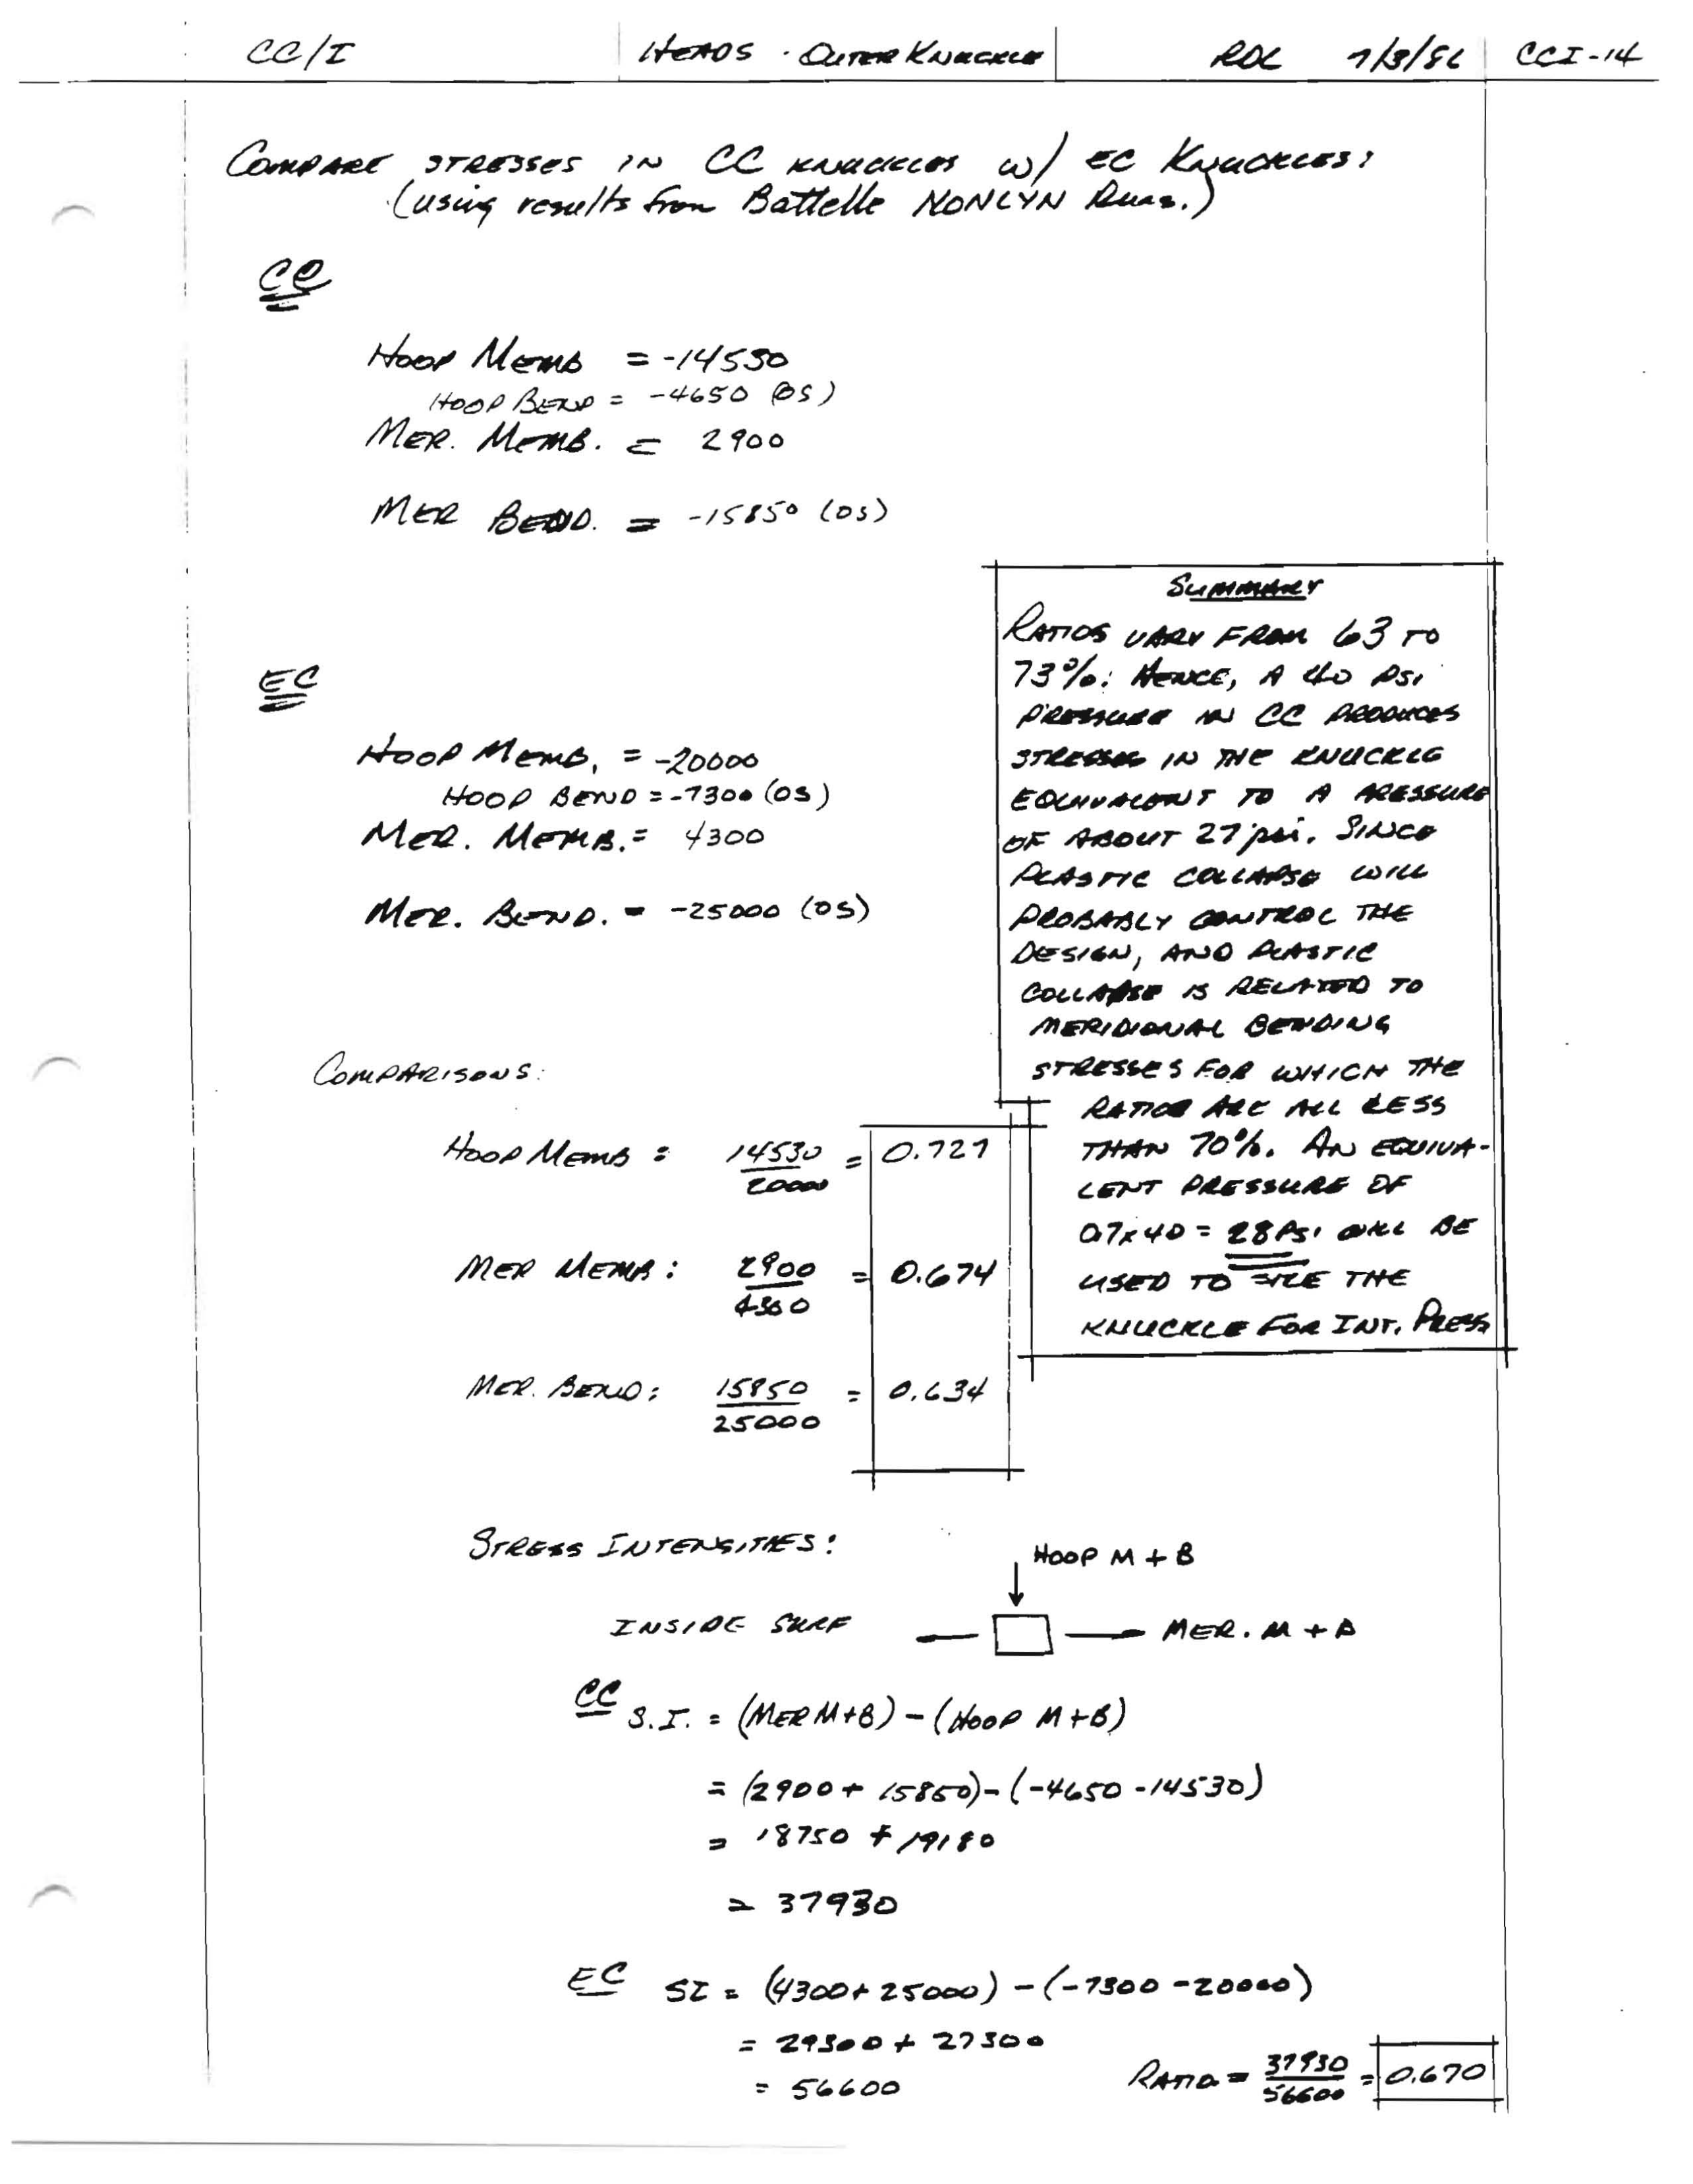 CC/I HEADS - OUTER KNUCKLE RDC 7/3/86 CCI-14
COMPARE STRESSES IN CC KNUCKLES w/ EC KNUCKLES:
(using results from Battelle NONLYN Runs.)
CC
HOOP MEMB = -14530
HOOP BEND = -4650 (OS)
MER. MEMB. = 2900
MER BEND. = -15850 (OS)
EC
HOOP MEMB. = -20000
HOOP BEND = -7300 (OS)
MER. MEMB. = 4300
MER. BEND. = -25000 (OS)
SUMMARY
RATIOS VARY FROM 63 TO
73%. HENCE, A 40 PSI
PRESSURE IN CC PRODUCES
STRESSES IN THE KNUCKLE
EQUIVALENT TO A PRESSURE
OF ABOUT 27 psi. SINCE
PLASTIC COLLAPSE WILL
PROBABLY CONTROL THE
DESIGN, AND PLASTIC
COLLAPSE IS RELATED TO
MERIDIONAL BENDING
STRESSES FOR WHICH THE
RATIOS ARE ALL LESS
THAN 70%. AN EQUIVA-
LENT PRESSURE OF
0.7x40 = 28 PSI WILL BE
USED TO SIZE THE
KNUCKLE FOR INT. PRESS
COMPARISONS:
HOOP MEMB : 14530/20000 = 0.727
MER MEMB : 2900/4300 = 0.674
MER. BEND : 15850/25000 = 0.634
STRESS INTENSITIES:
HOOP M + B
INSIDE SURF MER. M + B
CC S.I. = (MER M+B) - (HOOP M+B)
= (2900 + 15850) - (-4650 - 14530)
= 18750 + 19180
= 37930
EC SI = (4300 + 25000) - (-7300 - 20000)
= 29300 + 27300
= 56600
RATIO = 37930/56600 = 0.670